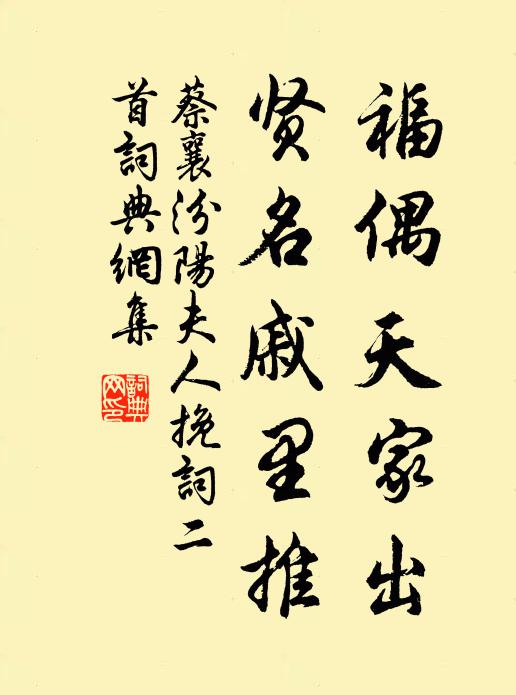 福偶天家出
贤名戚里推
蔡襄汾陽夫人挽詞二
首詞典網集
詞典网印